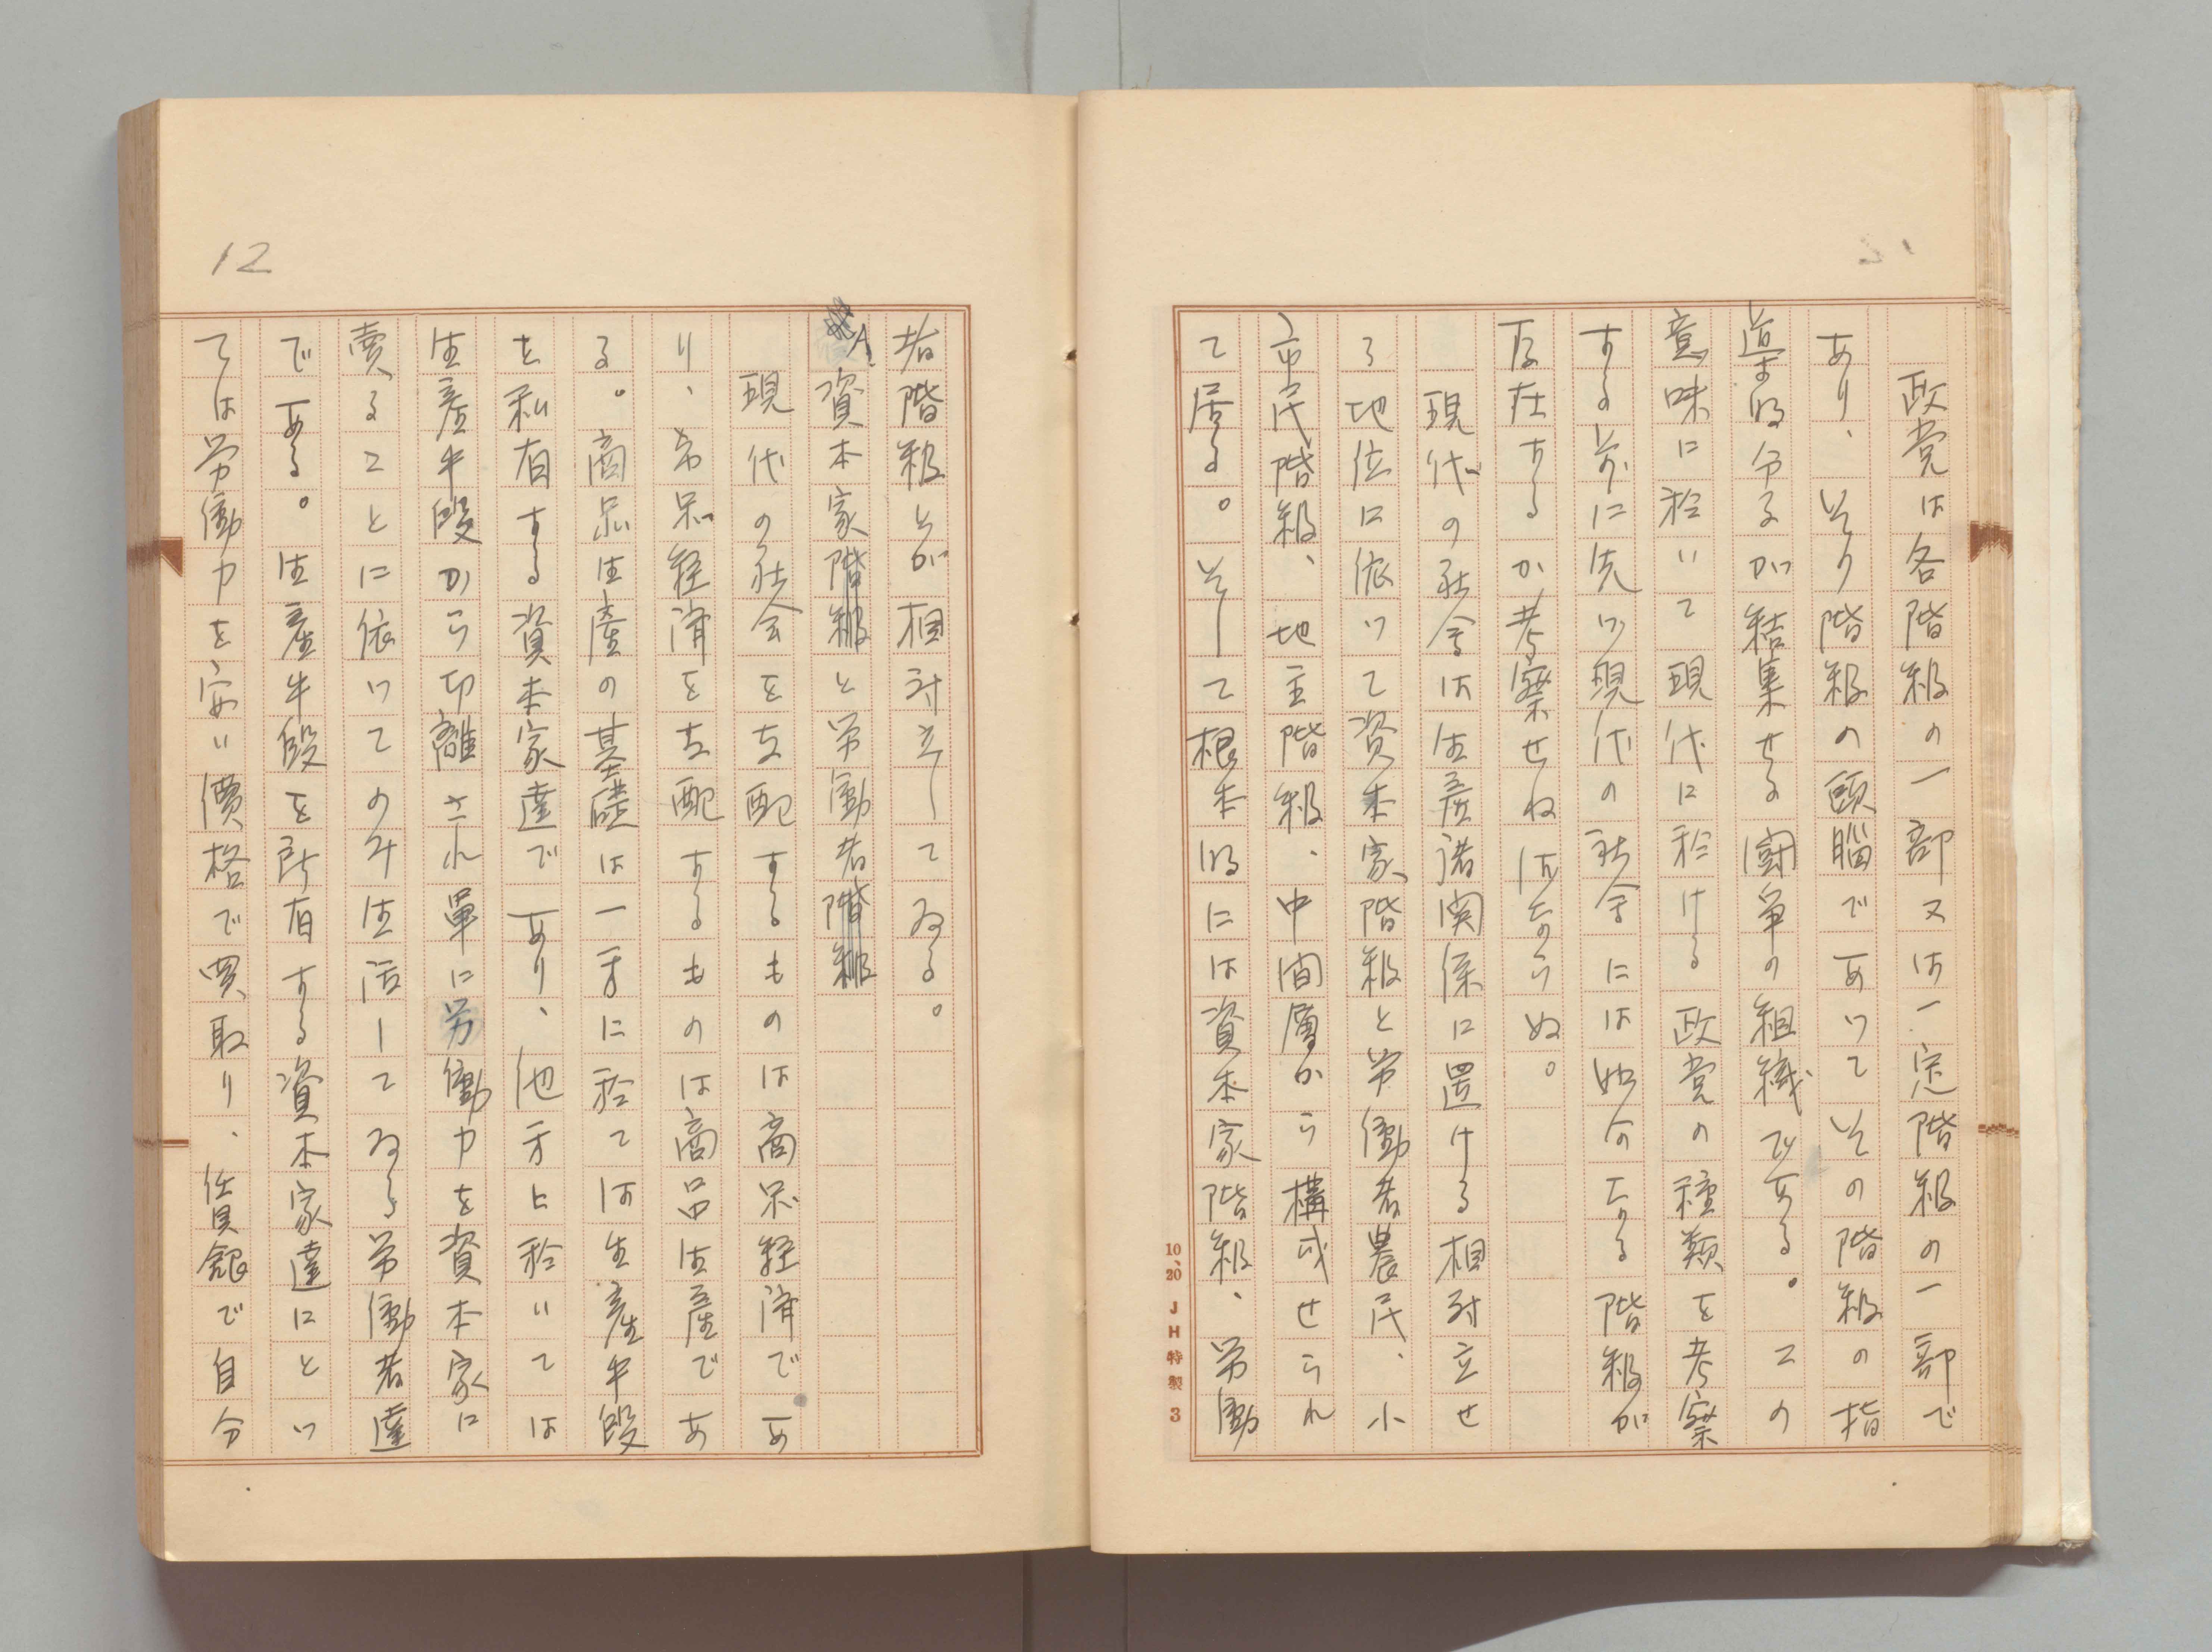 政党は各階級の一部又は一定階級の一部で
あり、その階級の頭腦であつてその階級の指
導的分子が結集せる闘争の組織である。この
意味に於いて現代に於ける政党の種類を考察
する前に先づ現代の社会には如何なる階級が
存在するか考察せねばならぬ。
現代の社会は生産諸関係に置ける相対立せ
る地位に依つて資本家階級と労働者農民、小
市民階級、地主階級、中間層から構成せられ
て居る。そして根本的には資本家階級、労働
10、20 JH特製 3
12
者階級とが相対立してゐる。
A、資本家階級と労働者階級
現代の社会を支配するものは商品経済であ
り、商品経済を支配するものは商品生産であ
る。商品生産の基礎は一方に於ては生産手段
を私有する資本家達であり、他方に於いては
生産手段から切離され単に労働力を資本家に
売ることに依つてのみ生活してゐる労働者達
である。生産手段を所有する資本家達にとつ
ては労働力を安い價格で買取り、賃銀で自分